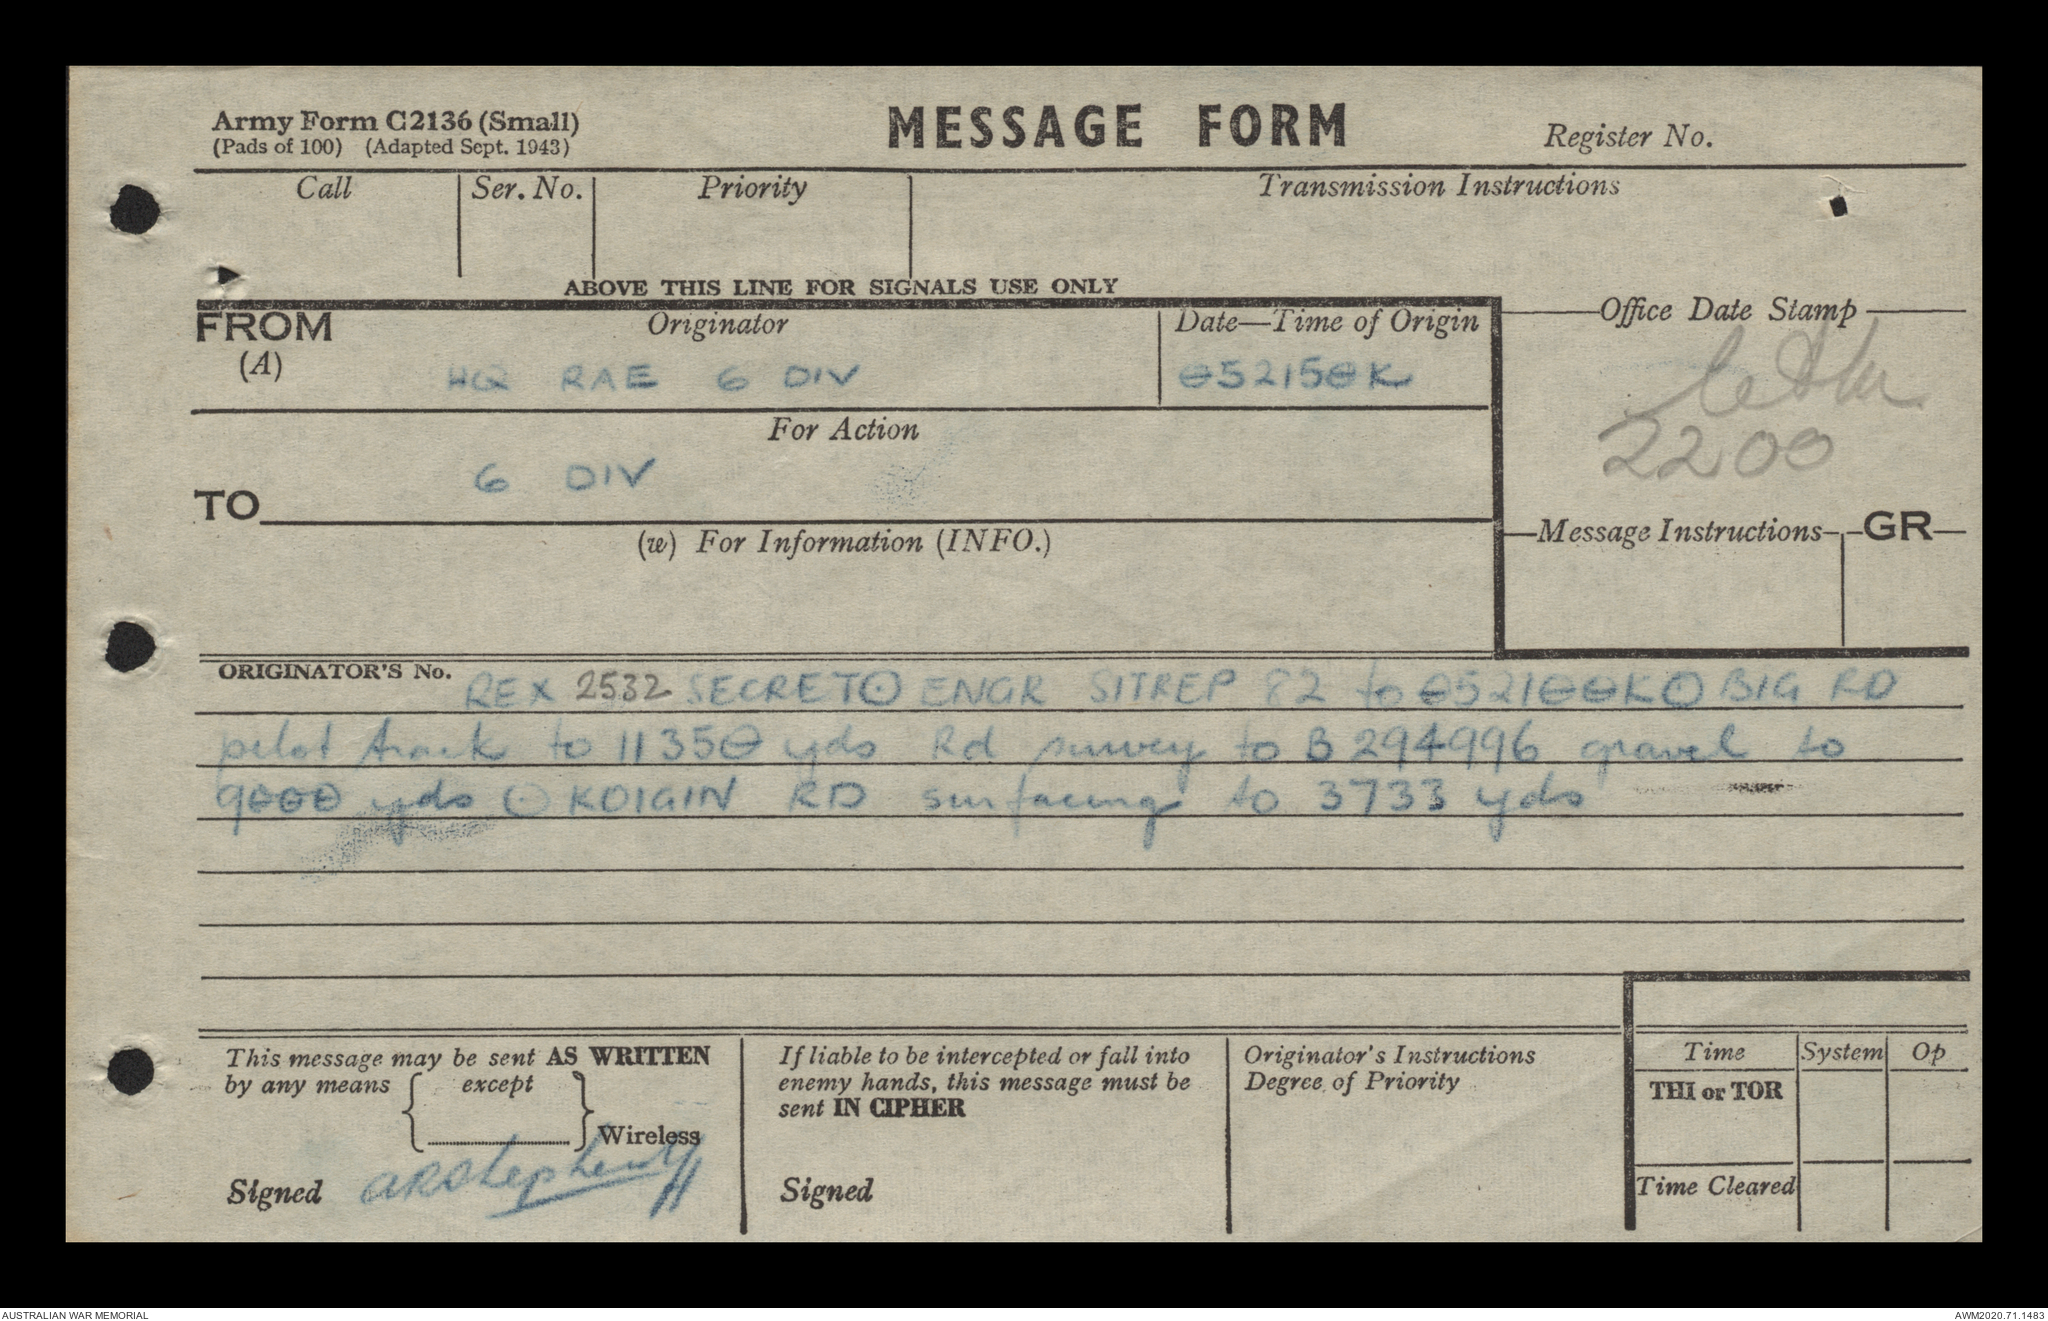 Army Form C2136 (Small)
(Pads of 100) (Adapted Sept. 1943)
MESSAGE FORM
Register No.
Call Ser. No. Priority Transmission Instructions
ABOVE THIS LINE FOR SIGNALS USE ONLY
FROM (A) Originator Date—Time of Origin Office Date Stamp
HQ RAE 6 DIV 052150K
For Action
2200
TO 6 DIV
(w) For Information (INFO.) Message Instructions GR
ORIGINATOR'S No. REX 2532 SECRET ⊙ ENGR SITREP 82 to 052100K ⊙ BIG RD
pilot track to 11350 yds Rd survey to B 294996 gravel to
9000 yds ⊙ KOIGIN RD surfacing to 3733 yds
This message may be sent AS WRITTEN
by any means { except } Wireless
Signed ARStephens
If liable to be intercepted or fall into
enemy hands, this message must be
sent IN CIPHER
Signed
Originator's Instructions
Degree of Priority
Time System Op
THI or TOR
Time Cleared
AUSTRALIAN WAR MEMORIAL AWM2020.71.1483